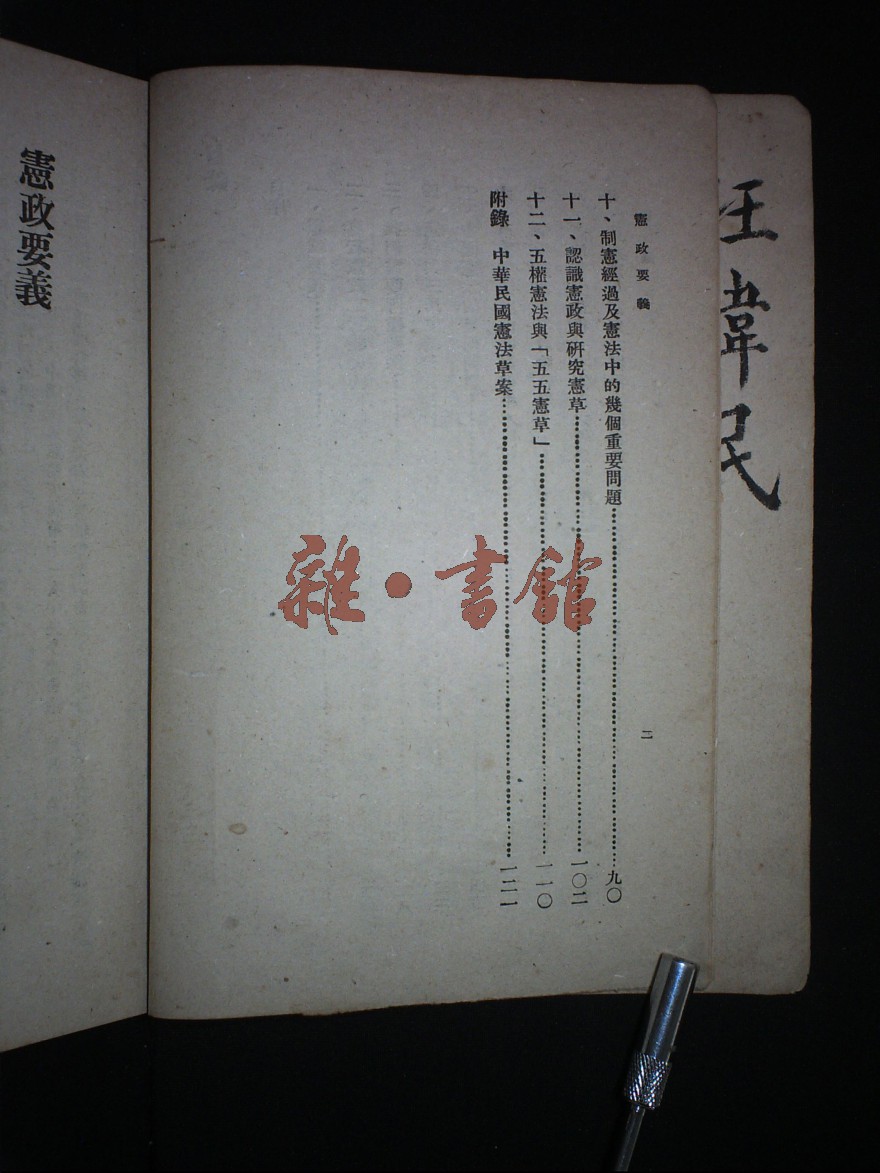 汪韋民
憲政要義
二
十、制憲經過及憲法中的幾個重要問題……九〇
十一、認識憲政與研究憲草……一〇二
十二、五權憲法與「五五憲草」……一一〇
附錄　中華民國憲法草案……一二一
憲政要義
雜·書館